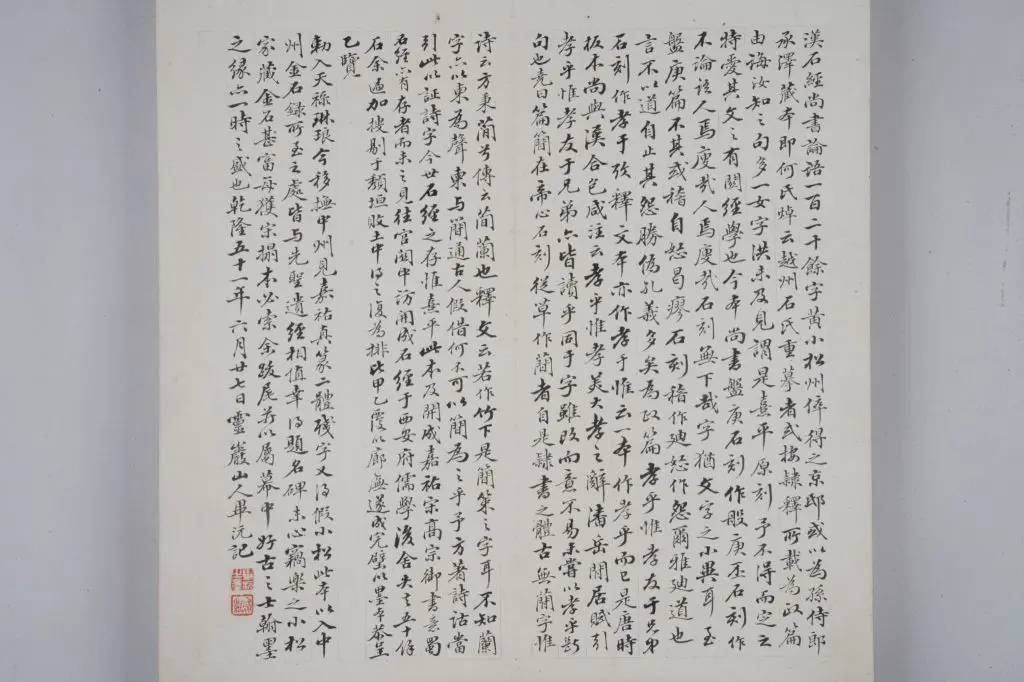 漢石經尚書論語一百二十餘字黄小松州倅得之京邸或以為孫侍郎
承澤藏本即何氏焯云越州石氏重摹者或據隸釋所載為政篇
由誨汝知之句多一女字洪未及見謂是熹平原刻予不得而定之
特愛其文之有関經學也今本尚書盤庚石刻作般庚丕石刻作
不論語人焉廋哉人焉廋哉石刻無下哉字猶文字之小異耳至
盤庚篇不其或稽自怒曷瘳石刻稽作迪怒作怨爾雅迪道也
言不以道自止其怨勝偽孔義多矣為政篇孝乎惟孝友于兄弟
石刻作孝于攷釋文本亦作孝于惟云一本作孝乎而已是唐時
板本尚與漢合包咸注云孝乎惟孝美大孝之辭潘岳閒居賦引
孝乎惟孝友于兄弟亦皆讀乎同于字雖改而意不易未嘗以孝乎斷
句也堯曰篇簡在帝心石刻從草作蕑者自是隸書之體古無蘭字惟
詩云方秉蕑兮傳云蕑蘭也釋文云若作竹下是簡策之字耳不知蘭
字亦以柬為聲柬与簡通古人假借何不可以簡為之乎予方著詩詁當
引此以証詩字今世石經之存惟熹平此本及開成嘉祐宋高宗御書蜀
石經存者而未之見往官関中訪開成石經于西安府儒學後舍失之五十餘
石余亟加搜剔于頹垣敗土中得之復為排比甲乙覆以廊廡遂成完璧以墨本恭呈
乙覽
勅入天祿琳琅今移撫中州見嘉祐真篆二體殘字又得假小松此本以入中
州金石錄所至之處皆与先聖遺經相值幸得題名碑末心竊樂之小松
家藏金石甚富每獲宋搨本必索余跋尾并以屬幕中好古之士翰墨
之緣亦一時之盛也乾隆五十一年六月廿七日靈巖山人畢沅記